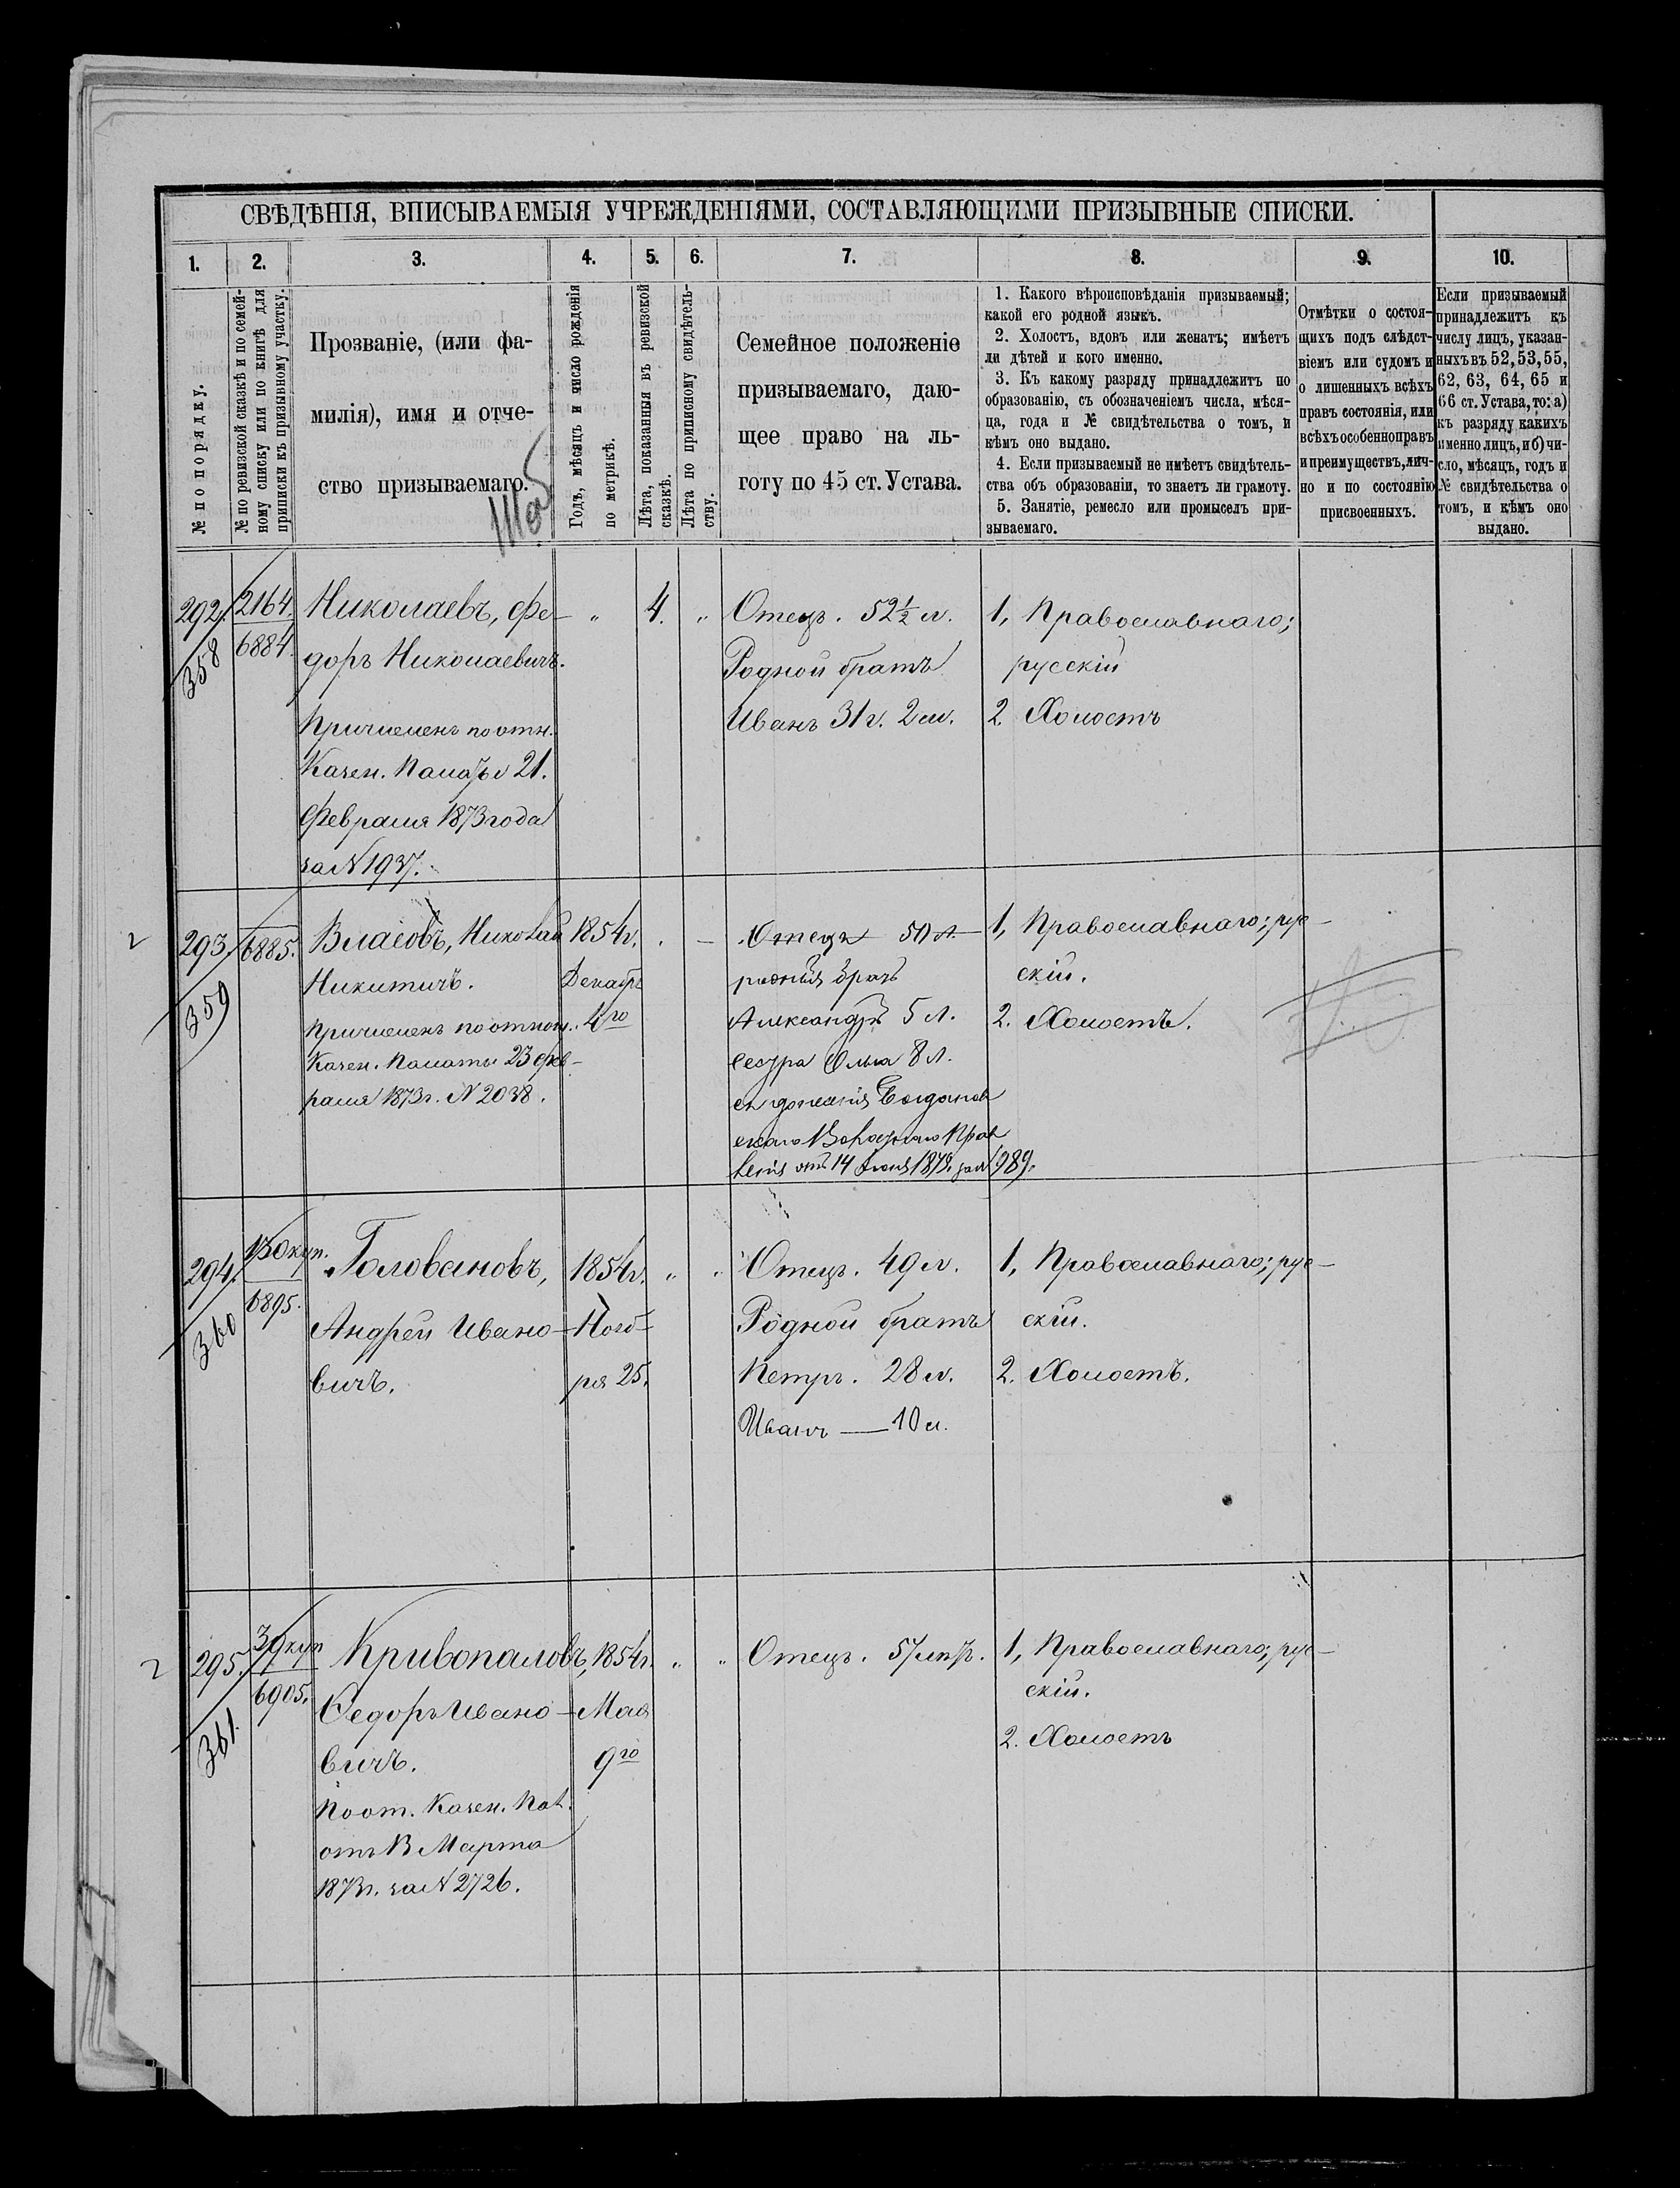 СВѢДѢНІЯ, ВПИСЫВАЕМЫЯ УЧРЕЖДЕНІЯМИ, СОСТАВЛЯЮЩИМИ ПРИЗЫВНЫЕ СПИСКИ.
1.
2.
3.
4.
5.
6.
7.
8.
9.
10.
№ по порядку.
№ по ревизской сказкѣ и по семей-
ному списку или по книгѣ для
приписки къ призывному участку.
Прозваніе, (или фа-
милія), имя и отче-
ство призываемаго.
Годъ, мѣсяцъ и число рожденія
по метрикѣ.
Лѣта, показанныя въ ревизской
сказкѣ.
Лѣта по приписному свидѣтель-
ству.
Семейное положеніе
призываемаго, даю-
щее право на ль-
готу по 45 ст. Устава.
1. Какого вѣроисповѣданія призываемый;
какой его родной языкъ.
2. Холостъ, вдовъ или женатъ; имѣетъ
ли дѣтей и кого именно.
3. Къ какому разряду принадлежитъ по
образованію, съ обозначеніемъ числа, мѣся-
ца, года и № свидѣтельства о томъ, и
кѣмъ оно выдано.
4. Если призываемый не имѣетъ свидѣтель-
ства объ образованіи, то знаетъ ли грамоту.
5. Занятіе, ремесло или промыселъ при-
зываемаго.
Отмѣтки о состоя-
щихъ подъ слѣдст-
віемъ или судомъ и
о лишенныхъ всѣхъ
правъ состоянія, или
всѣхъ особенно правъ
и преимуществъ, лич-
но и по состоянію
присвоенныхъ.
Если призываемый
принадлежитъ къ
числу лицъ, указан-
ныхъ въ 52, 53, 55,
62, 63, 64, 65 и
66 ст. Устава, то: а)
къ разряду какихъ
именно лицъ, и б) чи-
сло, мѣсяцъ, годъ и
№ свидѣтельства о
томъ, и кѣмъ оно
выдано.
292.
358
2164.
6884.
Николаевъ, Фе-
доръ Николаевичъ.
Причисленъ по отн.
Казен. Палаты 21.
Февраля 1873 года
за N 1937.
"
4.
"
Отецъ. 52½ л.
Родной братъ
Иванъ 31 г. 2 м.
1, Православнаго;
русскій
2. Холостъ
2
293.
359
6885.
Власовъ, Николай
Никитичъ.
Причисленъ по отнош.
Казен. Палаты 23 Фев-
раля 1873 г. N 2038.
1854 г.
Декабр
4го
Отецъ 50 л.
родныя братъ
Александръ 5 л.
сестра Ольга 8 л.
Богданов
скаго Волостнаго Прав
ленія отъ 14 Июня 187 за N 989.
1, Православнаго; рус-
скій.
2. Холостъ.
294.
360
150 куп.
6895.
Головановъ,
Андрей Ивано-
вичъ.
1854 г.
Нояб-
ря 25.
"
"
Отецъ. 49 л.
Родной братъ
Петръ. 28 л.
Иванъ — 10 л.
1, Православнаго; рус-
скій.
2. Холостъ.
2
295.
361.
39 куп
6905.
Кривопаловъ,
Ѳедоръ Ивано-
вичъ.
По от. Казен. Пал.
отъ 13 Марта
1873 г. за N 2726.
1854 г.
Мая
9го
"
"
Отецъ. 57 лѣтъ.
1, Православнаго; рус-
скій.
2. Холостъ